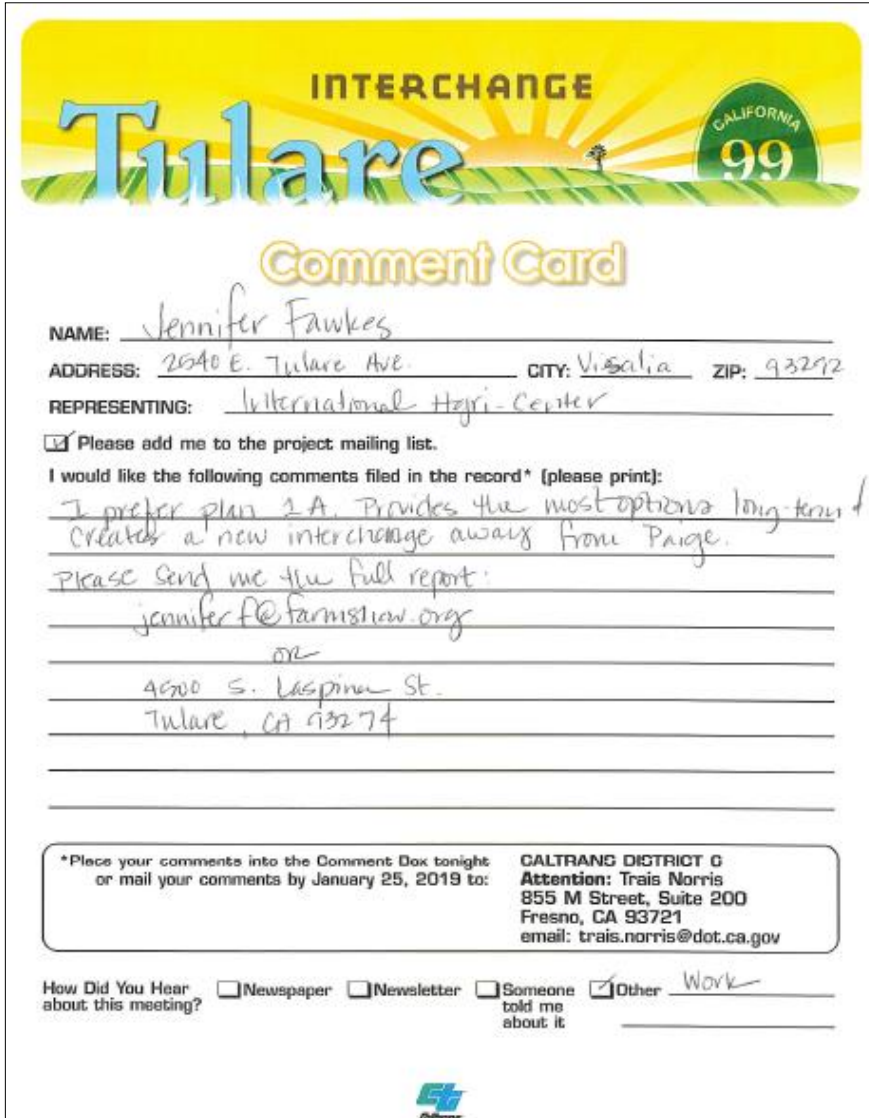 INTERCHANGE
Tulare
CALIFORNIA
99
Comment Card
NAME: Jennifer Fawkes
ADDRESS: 2540 E. Tulare Ave. CITY: Visalia ZIP: 93292
REPRESENTING: International Agri-Center
Please add me to the project mailing list.
I would like the following comments filed in the record* (please print):
I prefer plan 1A. Provides the most options long-term &
creates a new interchange away from Paige.
Please send me the full report:
jenniferf@farmshow.org
OR
4500 S. Laspina St.
Tulare, CA 93274
*Place your comments into the Comment Box tonight
or mail your comments by January 25, 2019 to:
CALTRANS DISTRICT 6
Attention: Trais Norris
855 M Street, Suite 200
Fresno, CA 93721
email: trais.norris@dot.ca.gov
How Did You Hear about this meeting? Newspaper Newsletter Someone told me about it Other Work
Caltrans